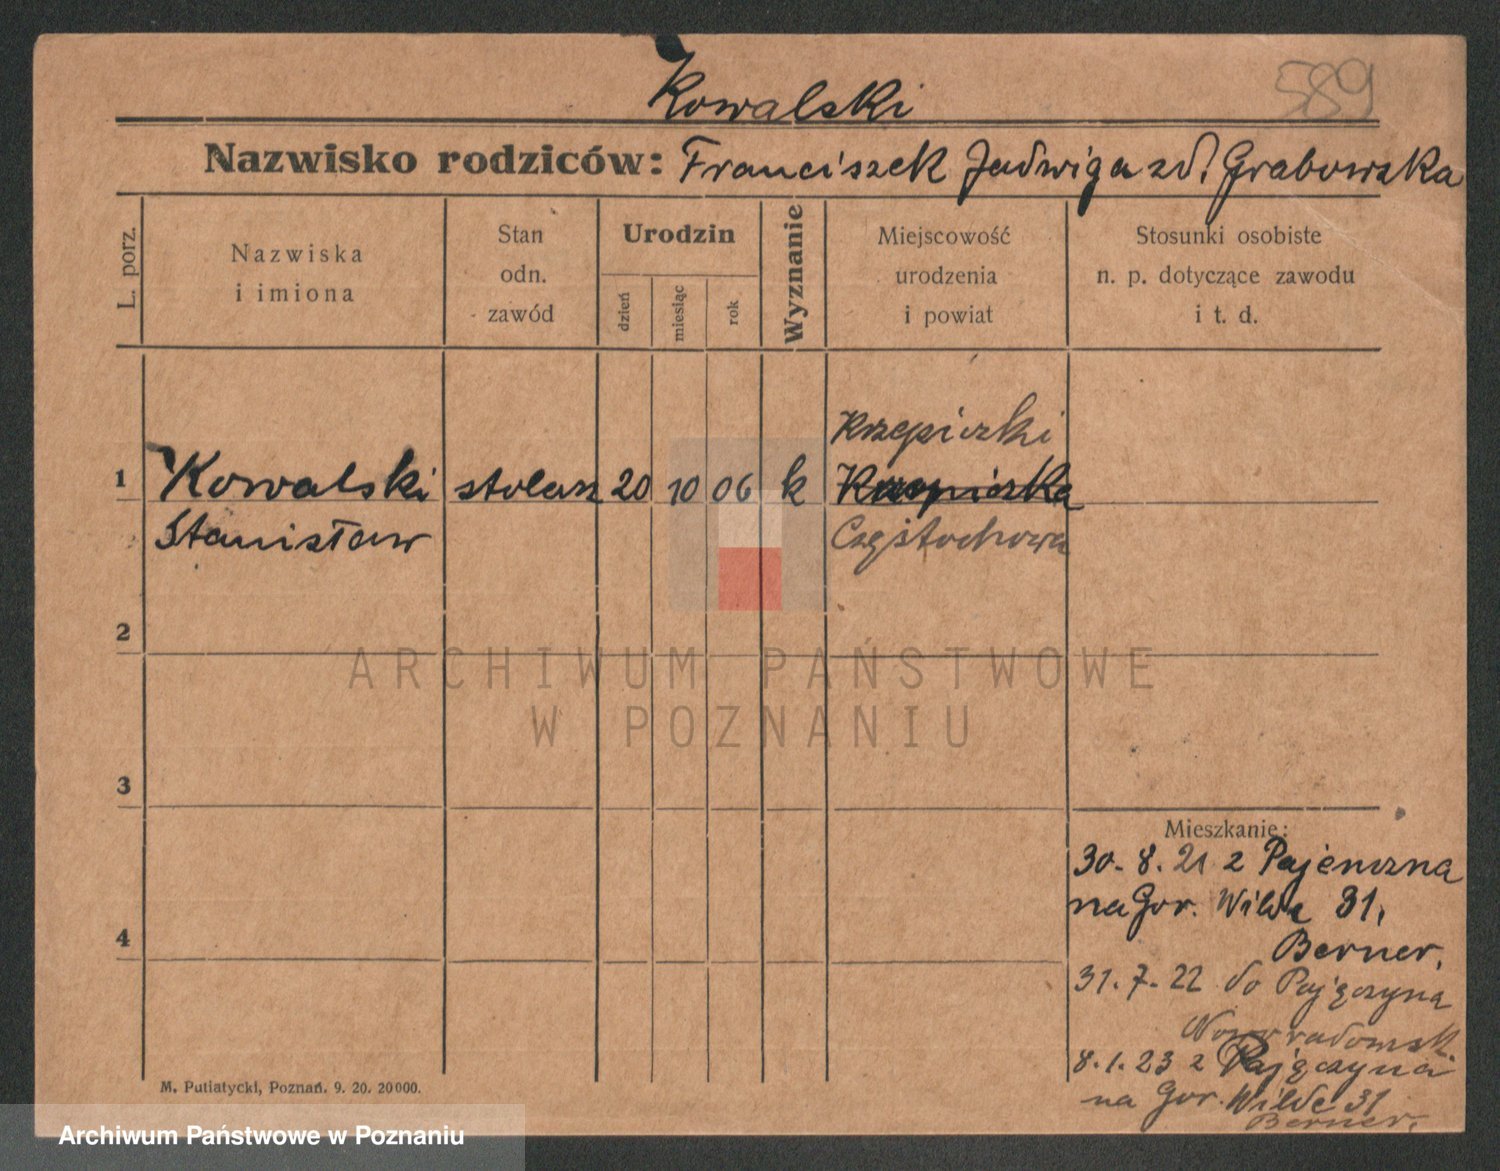 Kowalski
589
Nazwisko rodziców: Franciszek Jadwiga zd. Grabowska
L. porz.
Nazwiska
i imiona
Stan
odn.
zawód
Urodzin
dzień
miesiąc
rok
Wyznanie
Miejscowość
urodzenia
i powiat
Stosunki osobiste
n. p. dotyczące zawodu
i t. d.
Krzepiczki
1 Kowalski stolarz 20 10 06 k
Stanisław Częstochowa
2
3
4
Mieszkanie:
30. 8. 21 z Pajenczna
na Gor. Wilde 31,
Berner.
31. 7. 22 do Pajęczyna
Noworadomsk.
8. 1. 23 z Pajęczyna
na Gor. Wilde 31
Berner.
M. Putiatycki, Poznań. 9. 20. 20000.
ARCHIWUM PAŃSTWOWE
W POZNANIU
Archiwum Państwowe w Poznaniu